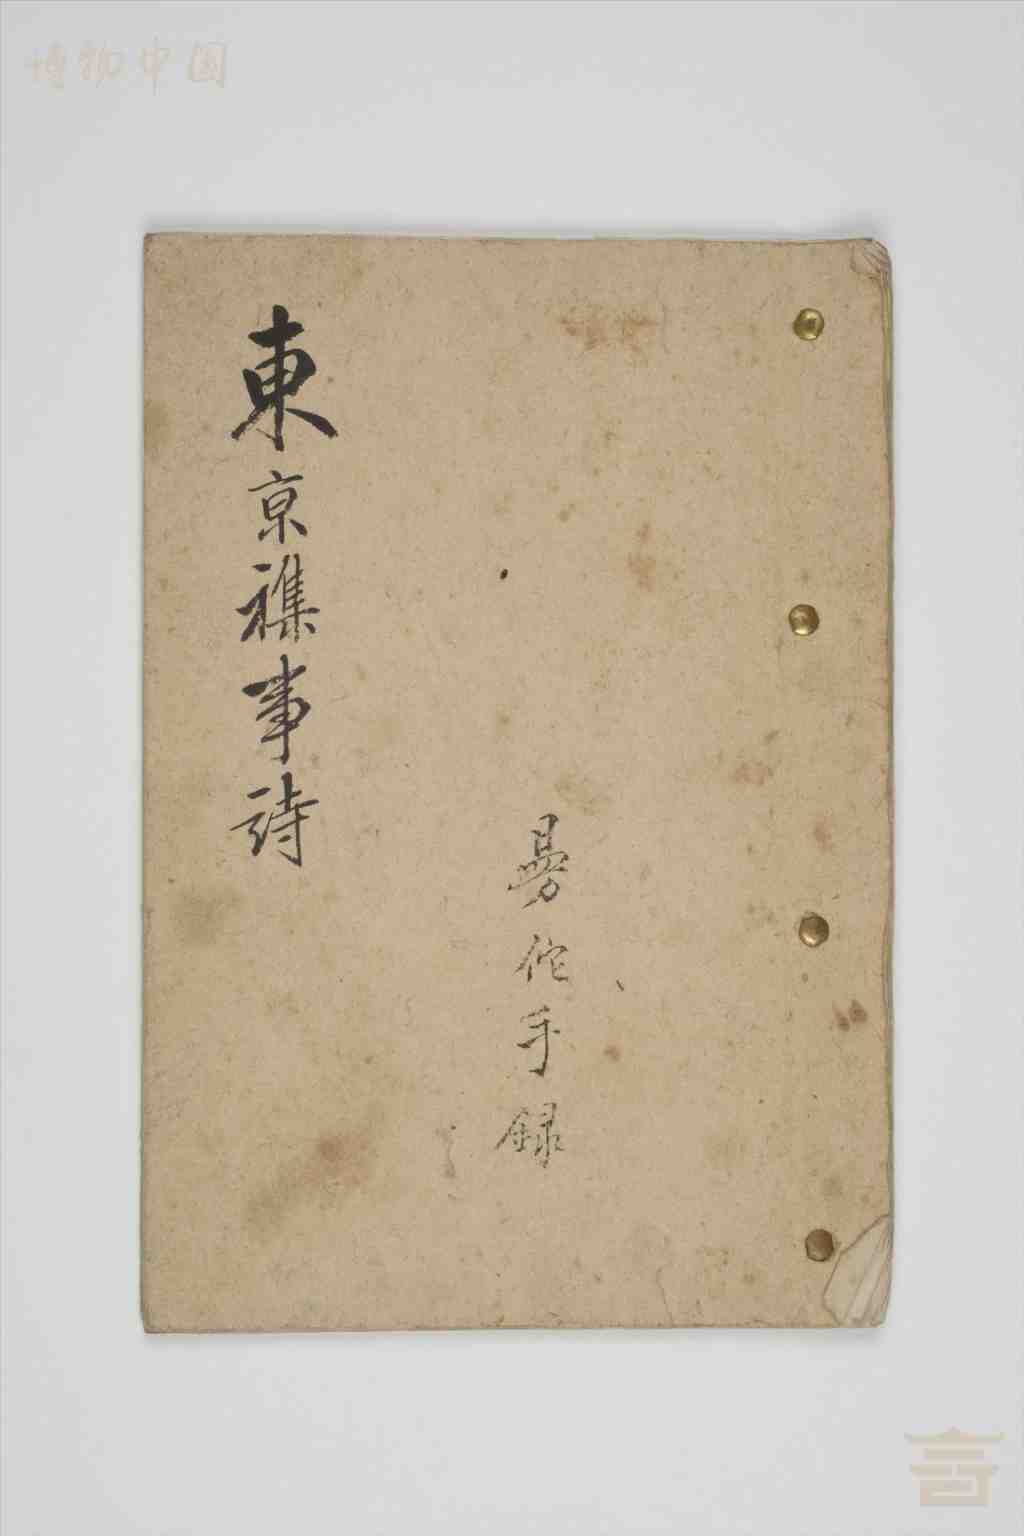 博物中国
東京襍事詩
曼佗手録